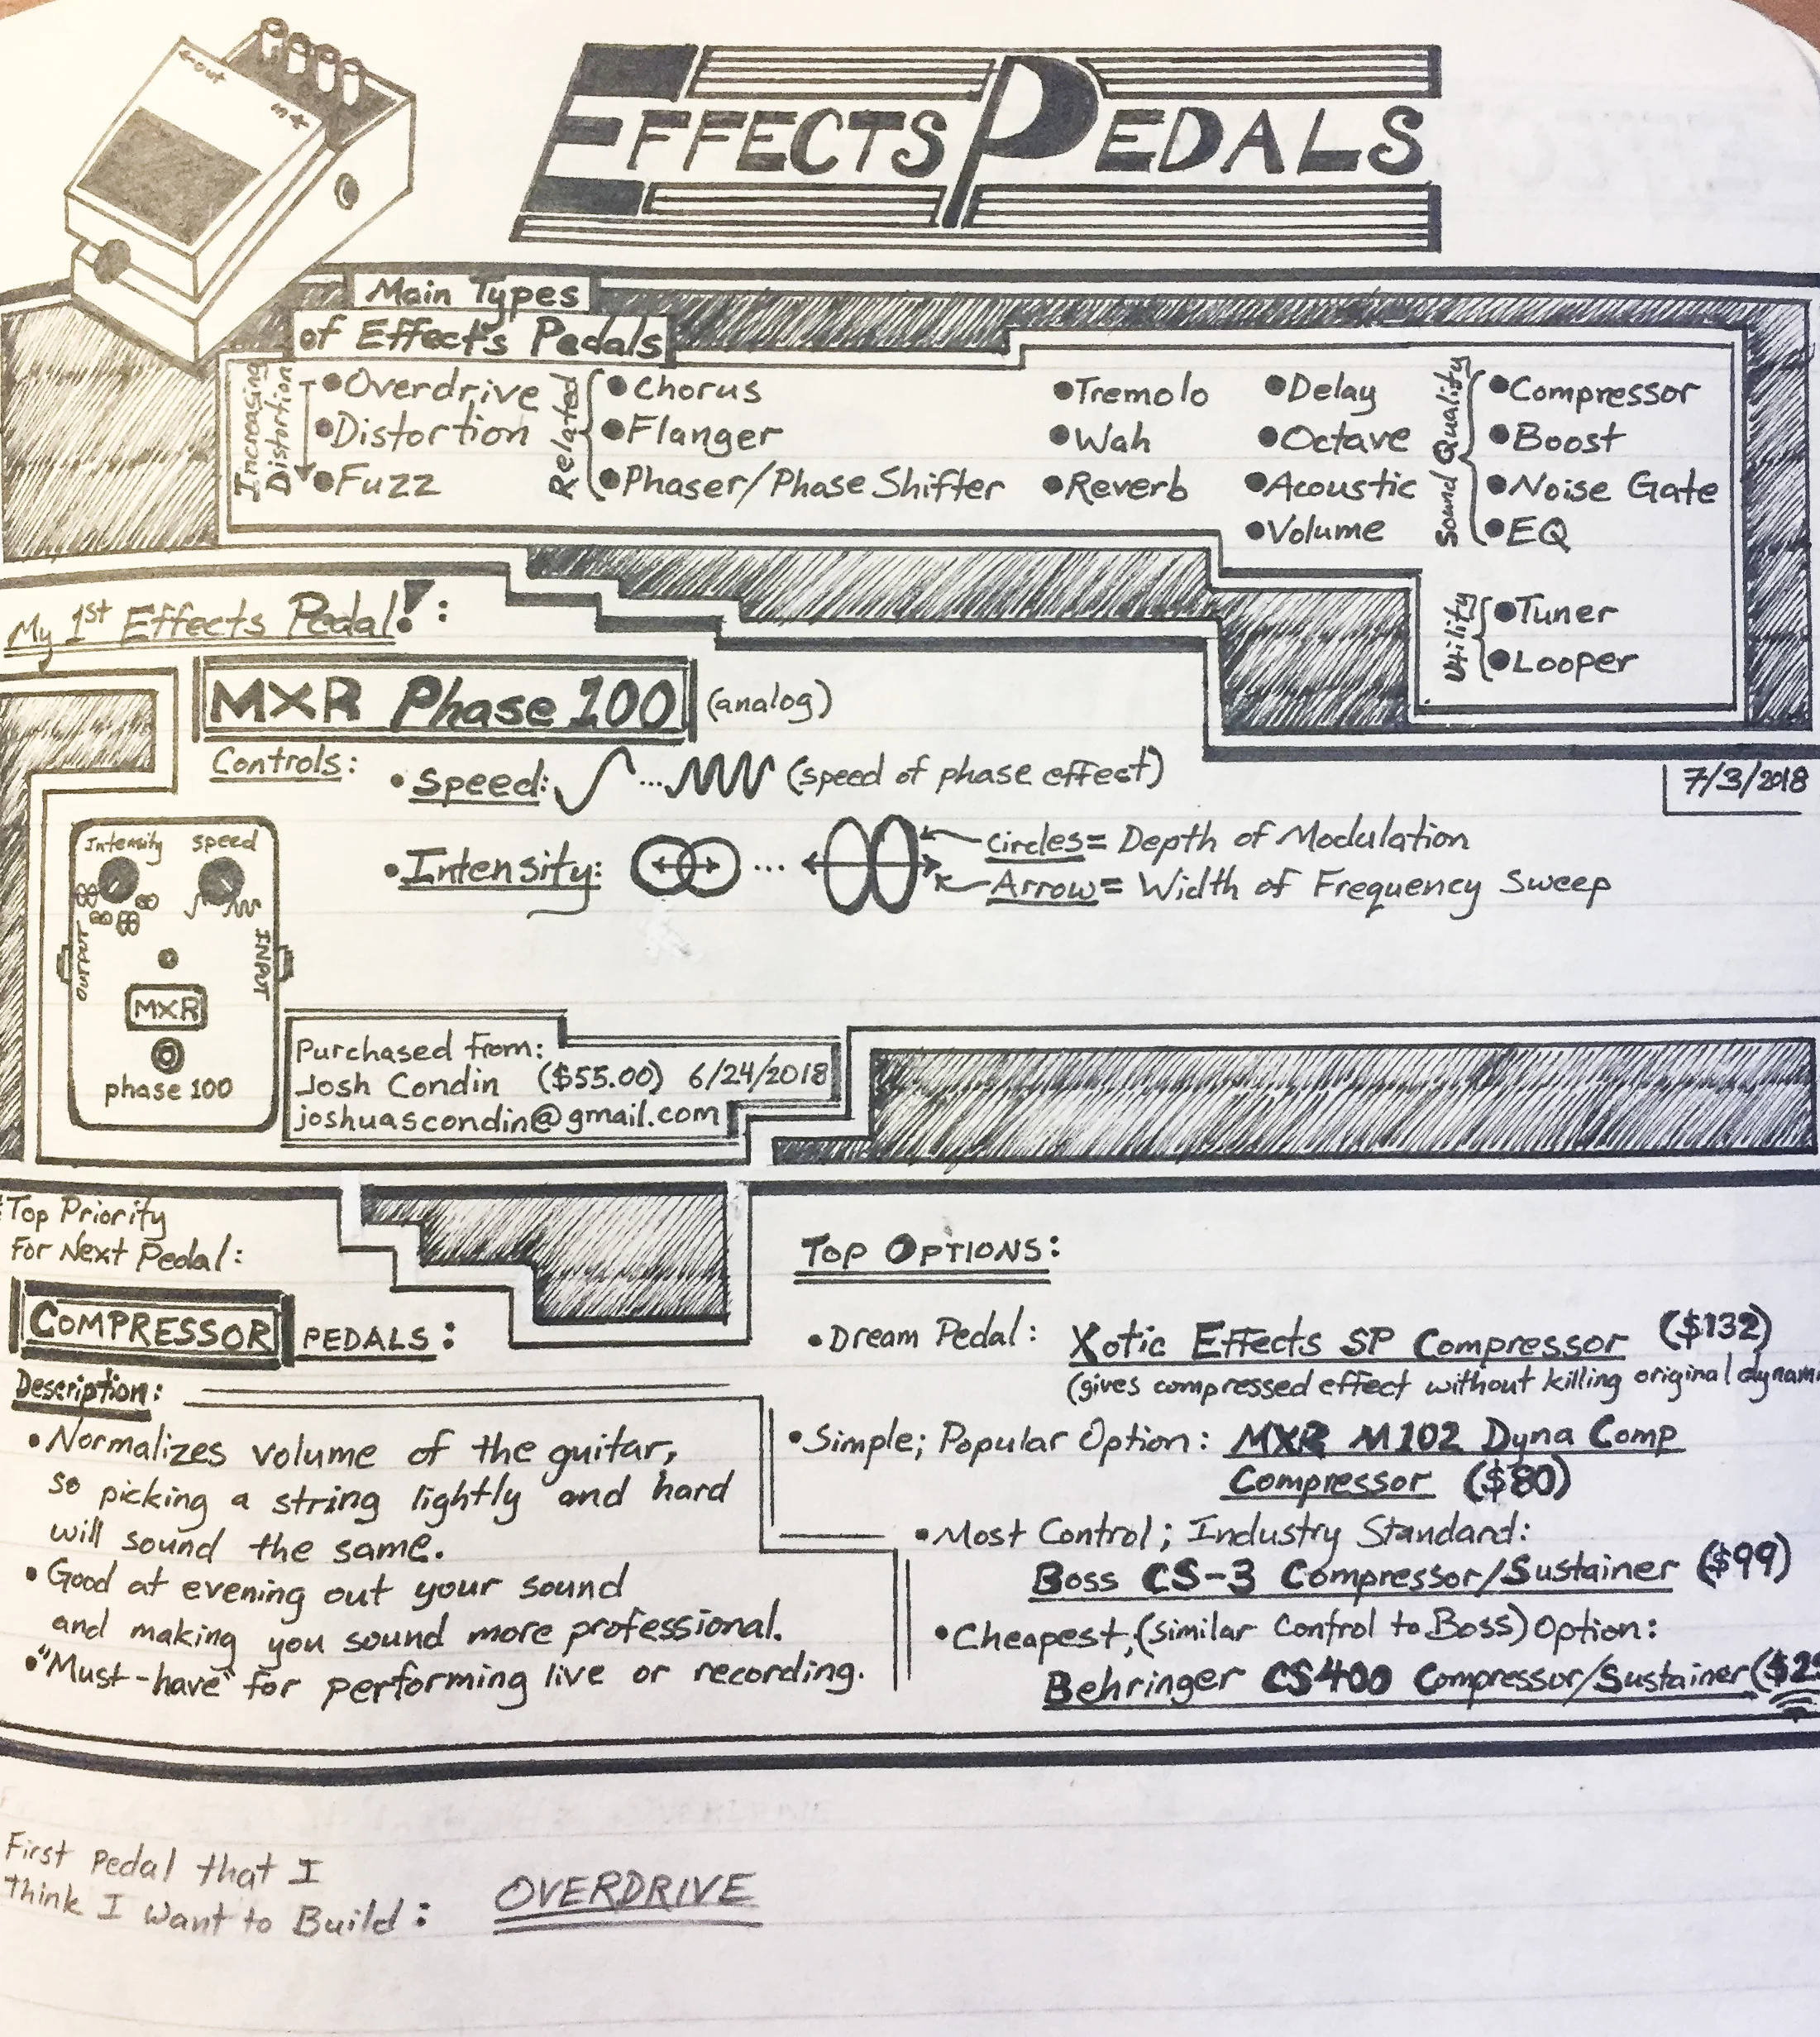 ←out
in←
EFFECTS PEDALS
Main Types
of Effects Pedals
Increasing
Distortion
•Overdrive
•Distortion
•Fuzz
Related
•Chorus
•Flanger
•Phaser/Phase Shifter
•Tremolo
•Wah
•Reverb
•Delay
•Octave
•Acoustic
•Volume
Sound Quality
•Compressor
•Boost
•Noise Gate
•EQ
Utility
•Tuner
•Looper
My 1st Effects Pedal!:
MXR Phase 100 (analog)
7/3/2018
Controls:
•Speed: ... (speed of phase effect)
•Intensity: ...
circles= Depth of Modulation
Arrow= Width of Frequency Sweep
Intensity speed
OUTPUT
INPUT
MXR
phase 100
Purchased from:
Josh Condin ($55.00) 6/24/2018
joshuascondin@gmail.com
Top Priority
For Next Pedal:
COMPRESSOR PEDALS:
Description:
•Normalizes volume of the guitar,
so picking a string lightly and hard
will sound the same.
•Good at evening out your sound
and making you sound more professional.
•"Must-have" for performing live or recording.
TOP OPTIONS:
•Dream Pedal: Xotic Effects SP Compressor ($132)
(gives compressed effect without killing original
•Simple; Popular Option: MXR M102 Dyna Comp
Compressor ($80)
•Most Control; Industry Standard:
Boss CS-3 Compressor/Sustainer ($99)
•Cheapest, (similar control to Boss) Option:
Behringer CS400 Compressor/Sustainer
First pedal that I
think I Want to Build: OVERDRIVE